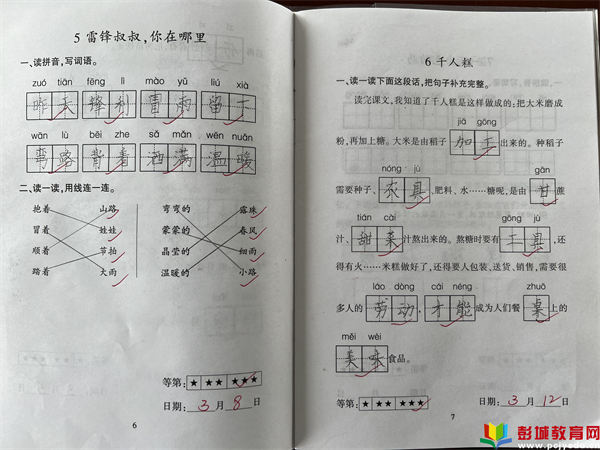 5 雷锋叔叔，你在哪里
一、读拼音，写词语。
zuó tiān fēng lì mào yǔ liú xià
昨天 锋利 冒雨 留下
wān lù bēi zhe sǎ mǎn wēn nuǎn
弯路 背着 洒满 温暖
二、读一读，用线连一连。
抱着 山路 弯弯的 露珠
冒着 娃娃 蒙蒙的 春风
顺着 节拍 晶莹的 细雨
踏着 大雨 温暖的 小路
等第：★ ★★ ★★★
日期：3月8日
6
6 千人糕
一、读一读下面这段话，把句子补充完整。
读完课文，我知道了千人糕是这样做成的：把大米磨成
jiā gōng
粉，再加上糖。大米是由稻子加工出来的。种稻子
nóng jù gān
需要种子、农具、肥料、水……糖呢，是由甘蔗
tián cài gōng jù
汁、甜菜汁熬出来的。熬糖时要有工具，还
得有火……米糕做好了，还得要人包装、送货、销售，需要很
láo dòng cái néng zhuō
多人的劳动，才能成为人们餐桌上的
měi wèi
美味食品。
等第：★ ★★ ★★★
日期：3月12日
7
彭城教育网
www.pcjyedu.net